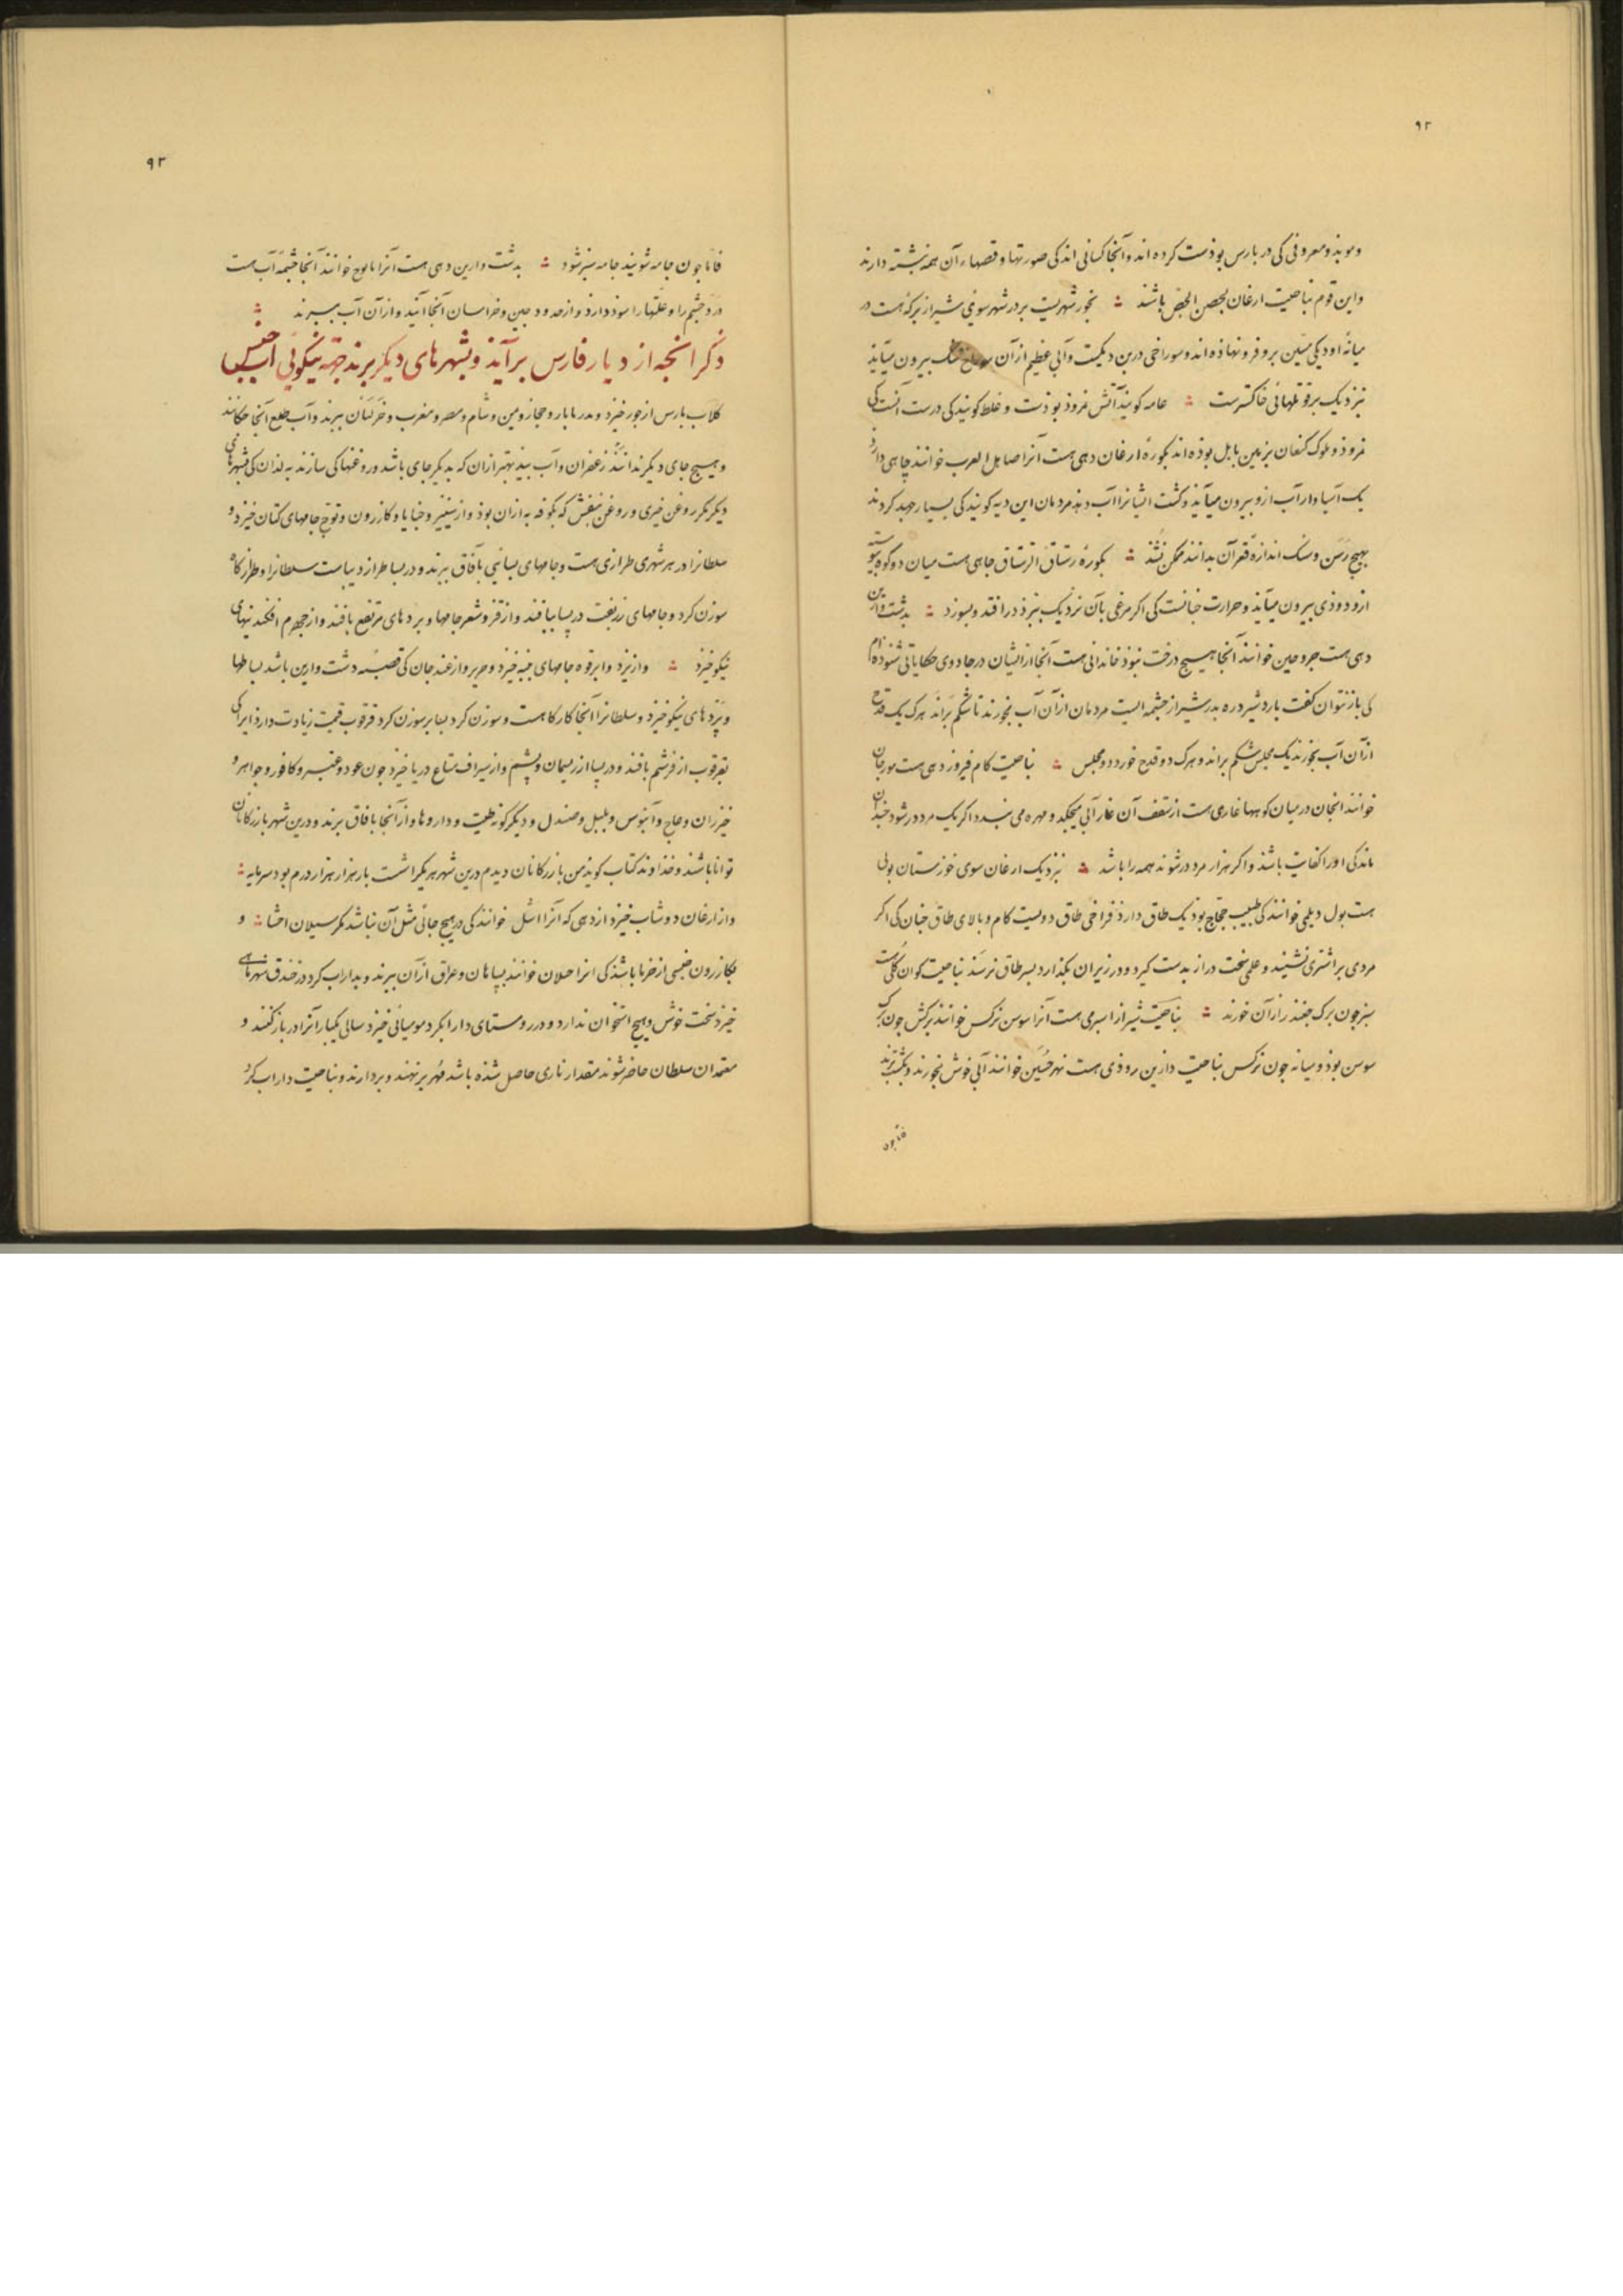 ۹۲
و موبذ و معروفی کی در پارس بوذست کرده اند و آنجا کسانی اند کی صورتها و قصهاء آن همه نبشته دارند
و این قوم بناحیت ارغان بحصن الجص باشند ؞ بجور شهریست بر در شهر سوی شیراز برکهٔ هست در
میانهٔ او دیکی مسین برو فرو نهاذه اند و سوراخی درین دیکست و آبی عظیم از آن سوراخ تنک بیرون میآید
نزدیک برقو تلهائی خاکسترست ؞ عامه کویند آتش نمروذ بوذست و غلط کویند کی درست آنست کی
نمروذ و ملوک کنعان بزمین بابل بوذه اند بکورهٔ ارغان دهی هست آنرا صاهل العرب خوانند چاهی دارد
یک آسیاوار آب ازو بیرون میآید و کشت ایشانرا آب دهد مردمان این دیه کویند کی بسیار جهد کردند
بهیچ رسن و سنک اندازهٔ قعر آن بدانند ممکن نشذ ؞ بکورهٔ رستاق الرستاق چاهی هست میان دو کوه پیوسته
ازو دوذی بیرون میآید و حرارت چنانست کی اکر مرغی بآن نزدیک بپرذ درافتد و بسوزد ؞ بدشت وارین
دهی هست جروجین خوانند آنجا هیچ درخت نبوذ خاندانی هست آنجا از ایشان در جادوی حکایاتی شنوده ام
کی باز نتوان کفت بارد شیرده بدر شیراز چشمه ایست مردمان از آن آب بخورند تا شکم براند هرک یک قدح
از آن آب بخورد یک مجلس شکم براند و هرک دو قدح خورد دو مجلس ؞ بناحیت کام فیروز دهی هست مورجان
خوانند انجا در میان کوهها غاری هست از سقف آن غار آبی میچکد و مهره می بندد اکر یک مرد در شود چندان
ماند کی او را کفایت باشد و اکر هزار مرد در شوند همه را باشد ؞ نزدیک ارغان سوی خوزستان پولی
هست پول دیلمی خوانند کی طبیب حجاج بوذ یک طاق دارذ فراخی طاق دویست کام و بالای طاق چنان کی اکر
مردی بر اشتری نشیند و علمی سخت دراز بدست کیرد و در زیر آن بکذارد بسر طاق نرسد بناحیت کوان کلی است
سبز چون برک چغندر از آن خورند ؞ بناحیت شیراز اسپرمی هست آنرا سوسن نرکس خوانند برکش چون برک
سوسن بوذ و میانه چون نرکس بناحیت دارین روذی هست نهر خشین خوانند آبی خوش بخورند و بکشت برند
فاما چون
۹۳
فاما چون جامه شویند جامه سبز شود ؞ بدشت وارین دهی هست آنرا مالوج خوانند آنجا چشمهٔ آب هست
درد چشم را و علتها را سوذ دارد و از حدود چین و خراسان آنجا آیند و از آن آب ببرند ؞
ذکر انچه از دیار فارس برآید و بشهرهای دیکر برند جهة نیکویی اجناس
کلاب پارس از جور خیزد و بدریابار و حجاز و یمن و شام و مصر و مغرب و خراسان ببرند و آب طلع آنجا چکانند
و هیچ جای دیکر ندانند زعفران و آب بید بهتر از آن که بدیکر جای باشد و روغنها کی سازند به از آن کی بشهرهای
دیکر مکر روغن خیری و روغن بنفش که بکوفه به از آن بوذ و از سینیز و جنابا و کازرون و توج جامهای کتان خیزد و
سلطانرا در هر شهری طرازی هست و جامهای بسایی بآفاق برند و در بسا طراز دیباست سلطانرا و طرازکاه
سوزن کرد و جامهای زربفت در پسا ببافند و از قز و شعر جامها و پردهای مرتفع بافند و از جهرم افکندنیهای
نیکو خیزد ؞ و از یزد و ابرقوه جامهای پنبه خیزد و حریر و از غندجان کی قصبهٔ دشت وارین باشد بساطها
و پردهای نیکو خیزد و سلطانرا آنجا کارکاهست و سوزن کرد بسا بر سوزن کرد قرقوب قیمت زیادت دارد ایرا کی
بقرقوب از قز شعر بافند و در پسا از ریسمان و پشم و از سیراف متاع دریا خیزد چون عود و عنبر و کافور و جواهر و
خیزران و عاج و آبنوس و پلپل و صندل و دیکر کونه طیب و داروها و از آنجا بآفاق برند و درین شهر بازرکانان
توانا باشند و خذاوند کتاب کویذ من بازرکانان دیدم درین شهر هر یکرا شست بار هزار هزار درم بود سرمایه ؞
و از ارغان دوشاب خیزد از دهی که آنرا اشل خوانند کی در هیچ جائی مثل آن نباشد مکر سیلان احشا ؞ و
بکازرون جنسی از خرما باشذ کی انرا جیلان خوانند بسپاهان و عراق از آن برند و بداراب کرد در خندق شهر ماهی
خیزد سخت خوش و هیچ استخوان ندارد و در روستای دارابکرد مومیائی خیزد سالی یکبار آنرا در باز کنند و
معتمدان سلطان حاضر شوند مقدار ناری حاصل شده باشد مهر بر نهند و بردارند و بناحیت داراب کرد